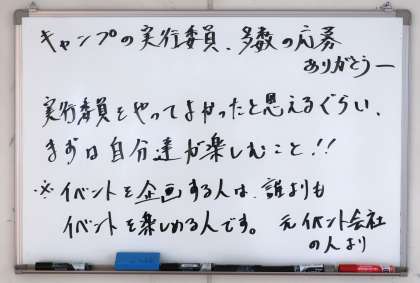 キャンプの実行委員、多数の応募
ありがとうー
実行委員をやってよかったと思えるぐらい、
まずは自分達が楽しむこと!!
※イベントを企画する人は、誰よりも
イベントを楽しめる人です。 元イベント会社
の人より